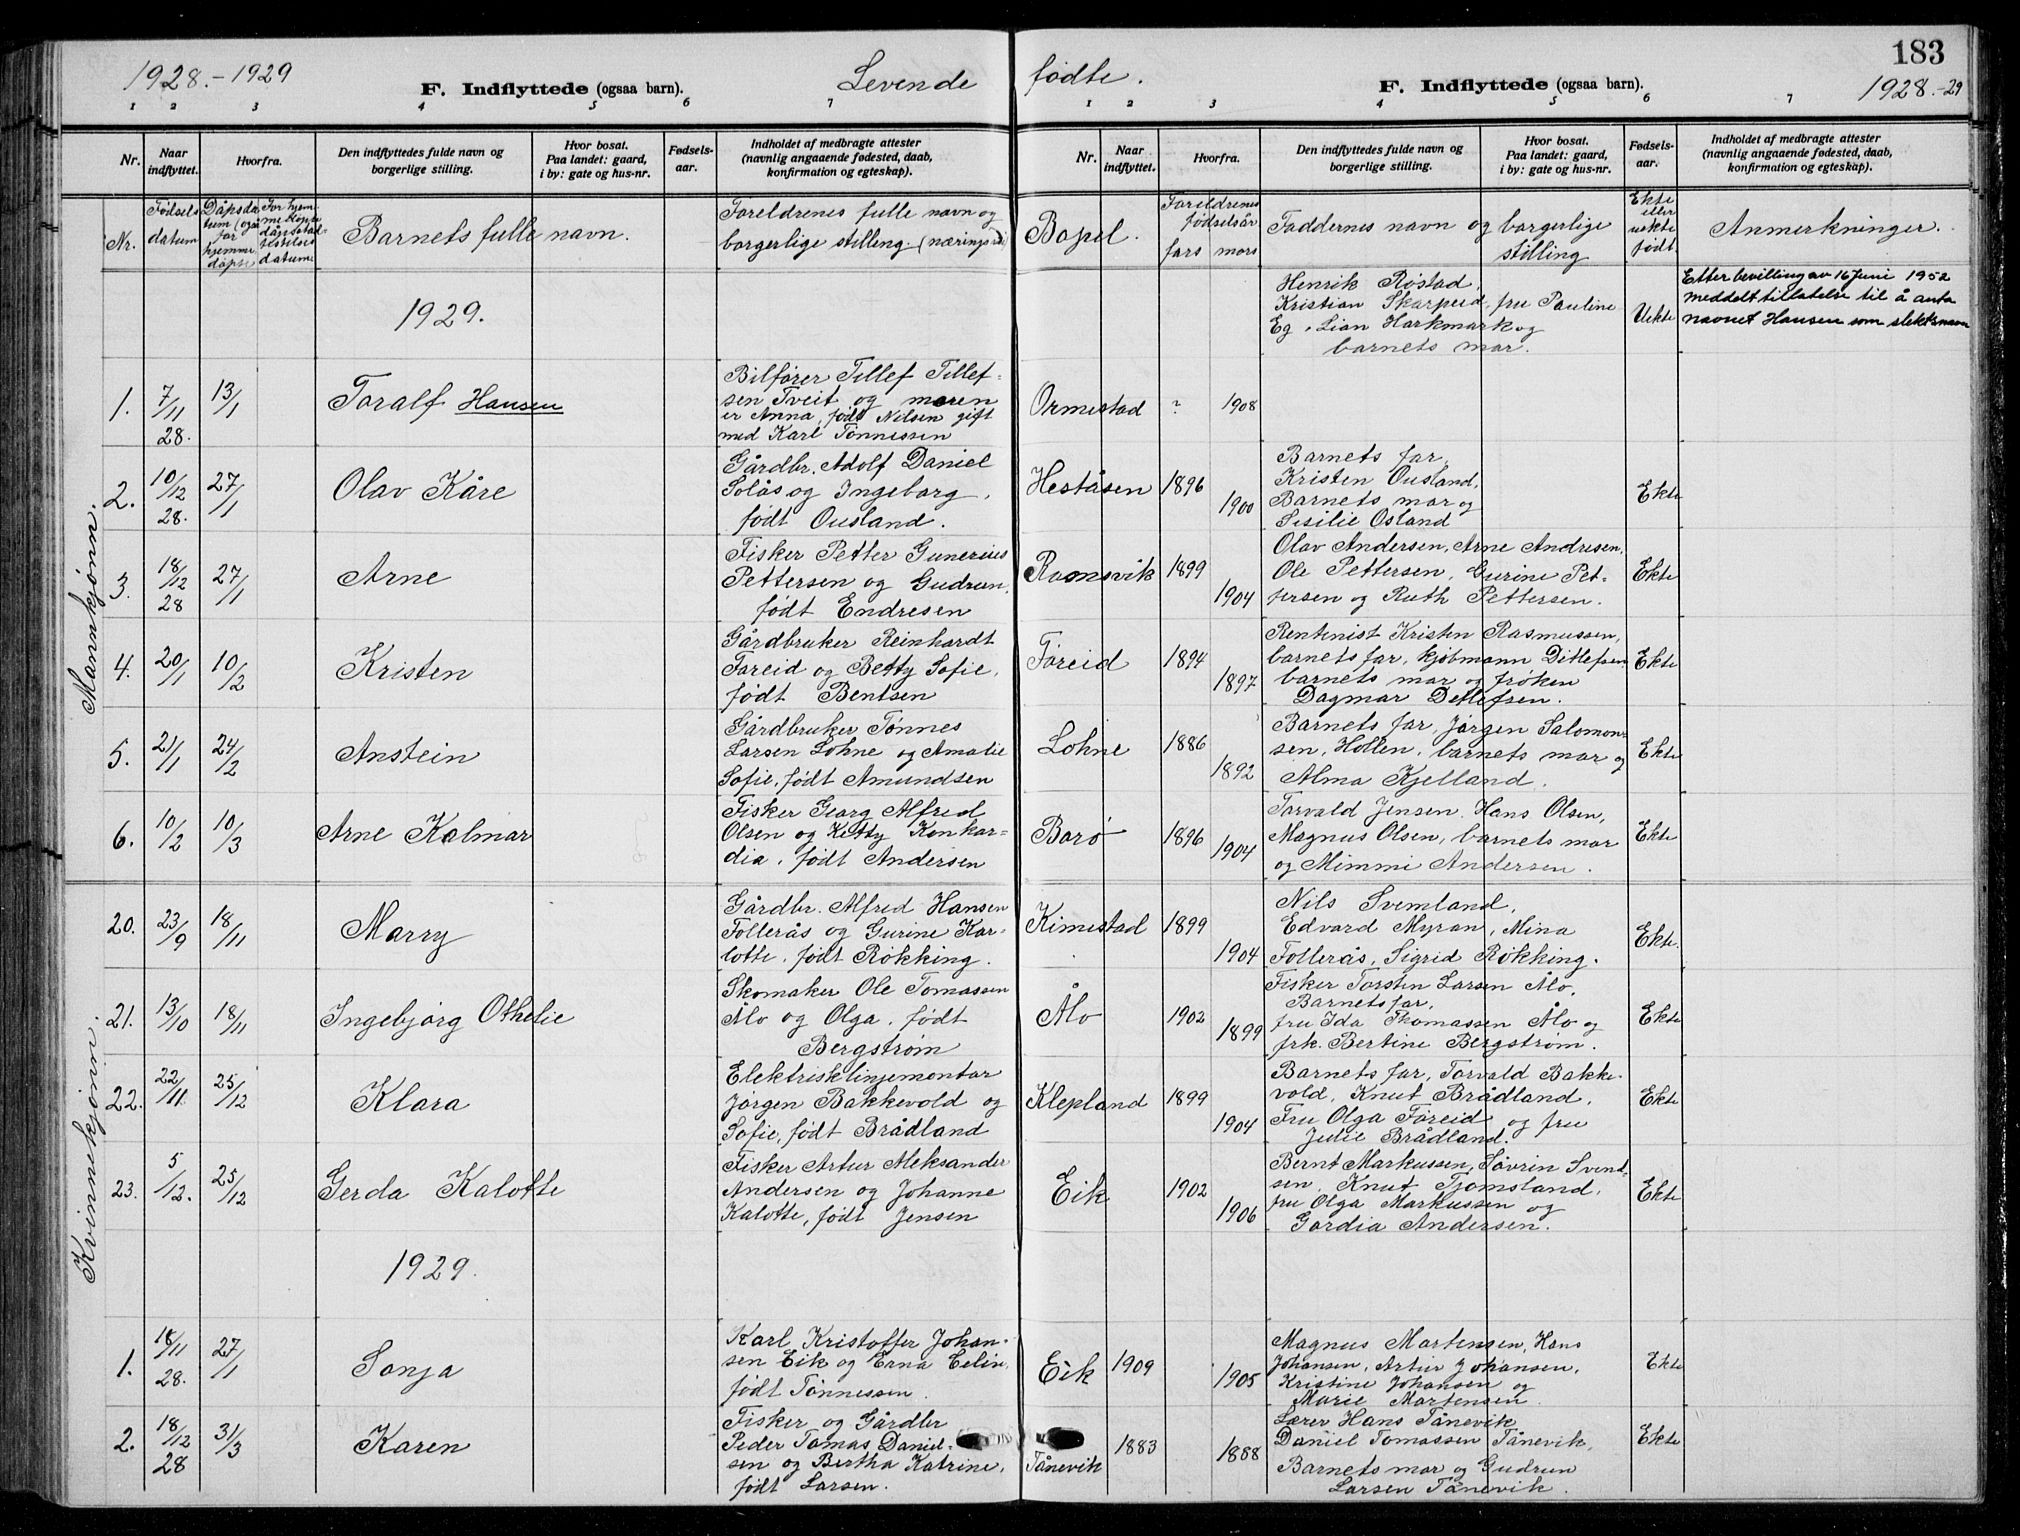 1928.-1929
F. Indflyttede (ogsaa barn).
Levende
fødte.
F. Indflyttede (ogsaa barn).
183
1928.-29
1 2 3 4 5 6 7
1 2 3 4 5 6 7
Nr.
Naar indflyttet.
Hvorfra.
Den indflyttedes fulde navn og
borgerlige stilling.
Hvor bosat.
Paa landet: gaard,
i by: gate og hus-nr.
Fødsels-
aar.
Indholdet af medbragte attester
(navnlig angaaende fødested, daab,
konfirmation og egteskap).
Nr.
Naar
indflyttet.
Hvorfra.
Den indflyttedes fulde navn og
borgerlige stilling.
Hvor bosat.
Paa landet: gaard,
i by: gate og hus-nr.
Fødsels-
aar.
Indholdet af medbragte attester
(navnlig angaaende fødested, daab,
konfirmation og egteskap).
Nr.
Fødsels
datum
Dåpsda
tum (også
for
hjemme
døpte
For hjem-
me døpte
datum
Barnets fulle navn.
Foreldrenes fulle navn og
borgerlige stilling. (nærings
Bopel.
Foreldrenes
fødselsår
fars mors
Faddernes navn og borgerlige
stilling
Ekte
eller
uekte
født
Anmerkninger.
1929.
Mannkjønn.
1.
7/11
28.
13/1
Toralf Hansen
Bilfører Tillef Tillef-
sen Tveit og moren
er Anna, født Nilsen gift
med Karl Tønnessen
Ormestad
?
1908
Henrik Røstad,
Kristian Skarpeid, fru Pauline
Eg, Lian Harkmark og
barnets mor.
Uekte
Etter bevilling av 16 Juni 1952
meddelt tillatelse til å anta
navnet Hansen som slektsnavn
2.
10/12
28.
27/1
Olav Kåre
Gårdbr. Adolf Daniel
Solås og Ingeborg,
født Ousland.
Heståsen
1896
1900
Barnets far,
Kristen Ousland,
Barnets mor og
Sisilie Osland
Ekte
3.
18/12
28
27/1
Arne
Fisker Petter Gunerius
Pettersen og Gudrun,
født Endresen
Ramsvik
1899
1904
Olav Andersen, Arne Andresen,
Ole Pettersen, Gurine Pet-
tersen og Ruth Pettersen.
Ekte
4.
20/1
10/2
Kristen
Gårdbruker Reinhardt
Foreid og Betty Sofie,
født Bentsen
Føreid
1894
1897
Rentenist Kristen Rasmussen,
barnets far, kjøbmann Ditlefsen
barnets mor og frøken
Dagmar Detlefsen.
Ekte
5.
21/1
24/2
Anstein
Gårdbruker Tønnes
Larsen Lohne og Amalie
Sofie, født Amundsen
Lohne
1886
1892
Barnets far, Jørgen Salomon-
sen, Hollen, barnets mor og
Alma Kjelland.
Ekte
6.
10/2
10/3
Arne Kalmar
Fisker Georg Alfred
Olsen og Ketty Konkor-
dia, født Andersen
Borø
1896
1904
Torvald Jensen, Hans Olsen,
Magnus Olsen, barnets mor
og Mimmi Andersen.
Ekte
Kvinnekjønn.
20.
23/9
18/11
Marry
Gårdbr. Alfred Hansen
Follerås og Gurine Kar-
lotte, født Røkking.
Kimestad
1899
1904
Nils Svemland,
Edvard Myran, Mina
Follerås, Sigrid Røkking.
Ekte.
21.
13/10
18/11
Ingebjørg Othelie
Skomaker Ole Tomassen
Ålo og Olga, født
Bergstrøm
Ålo
1902
1899
Fisker Torsten Larsen Ålo,
Barnets far,
fru Ida Thomassen Ålo og
frk. Bertine Bergstrøm.
Ekte
22.
22/11
25/12
Klara
Elektrisklinjemontør
Jørgen Bakkevold og
Sofie, født Brådland
Klepland
1899
1904
Barnets far, Torvald Bakke-
vold, Knut Brådland,
Fru Olga Føreid og fru
Julie Brådland.
Ekte
23.
5/12.
25/12
Gerda Kalotte
Fisker Artur Aleksander
Andersen og Johanne
Kalotte, født Jensen
Eik
1902
1906
Bernt Markussen, Søvrin Svend-
sen, Knut Tjomsland,
fru Olga Markussen og
Gordia Andersen.
Ekte
1929.
1.
18/11
28.
27/1
Sonja
Karl Kristoffer Johan-
sen Eik og Erna Celin,
født Tønnessen.
Eik
1909
1905
Magnus Martensen, Hans
Johansen, Artur Johansen,
Kristine Johansen og
Marie Martensen.
Ekte
2.
18/12
28
31/3
Karen
Fisker og Gårdbr
Peder Tomas Daniel-
sen og Bertha Katrine,
født Larsen.
Tånevik
1883
1888
Lærer Hans Tånevik,
Daniel Tomassen Tånevik,
Barnets mor og Gudrun
Larsen Tånevik.
Ekte